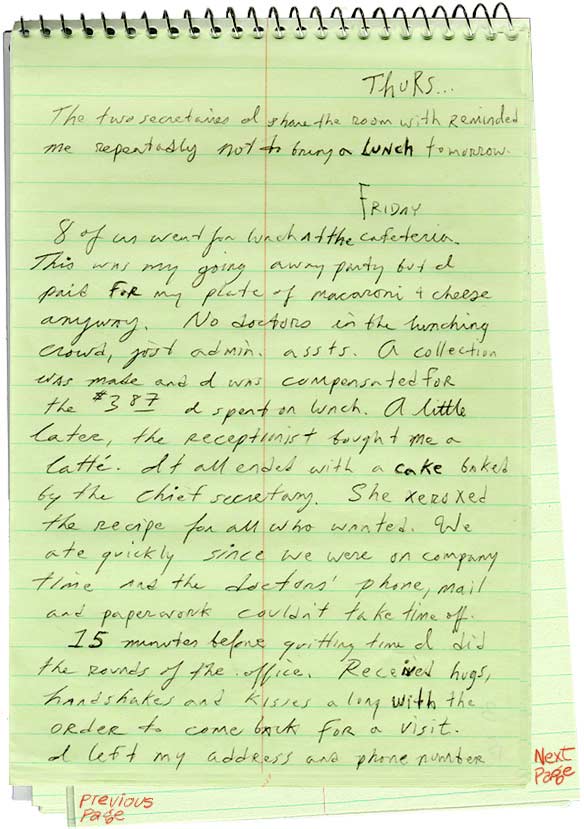 THURS...
The two secretaires I share the room with Reminded
me repeatadly not to bring a LUNCH tomorrow.
FRIDAY
8 of us went for lunch At the cafeteria.
This was my going away party but I
paid FOR my plate of macaroni + cheese
anyway. No doctors in the lunching
crowd, just admin. assts. A collection
was made and I was compensated FOR
the $3 87 I spent on lunch. A little
later, the receptionist bought me a
latté. It all ended with a cake baked
by the chief secretary. She xeroxed
the recipe for all who wanted. We
ate quickly since we were on company
time and the doctors' phone, mail
and paperwork couldn't take time off.
15 minutes before quitting time I did
the rounds of the office. Received hugs,
handshakes and kisses along with the
ORDER to come back FOR a visit.
I left my address and phone number
Next
Page
Previous
Page